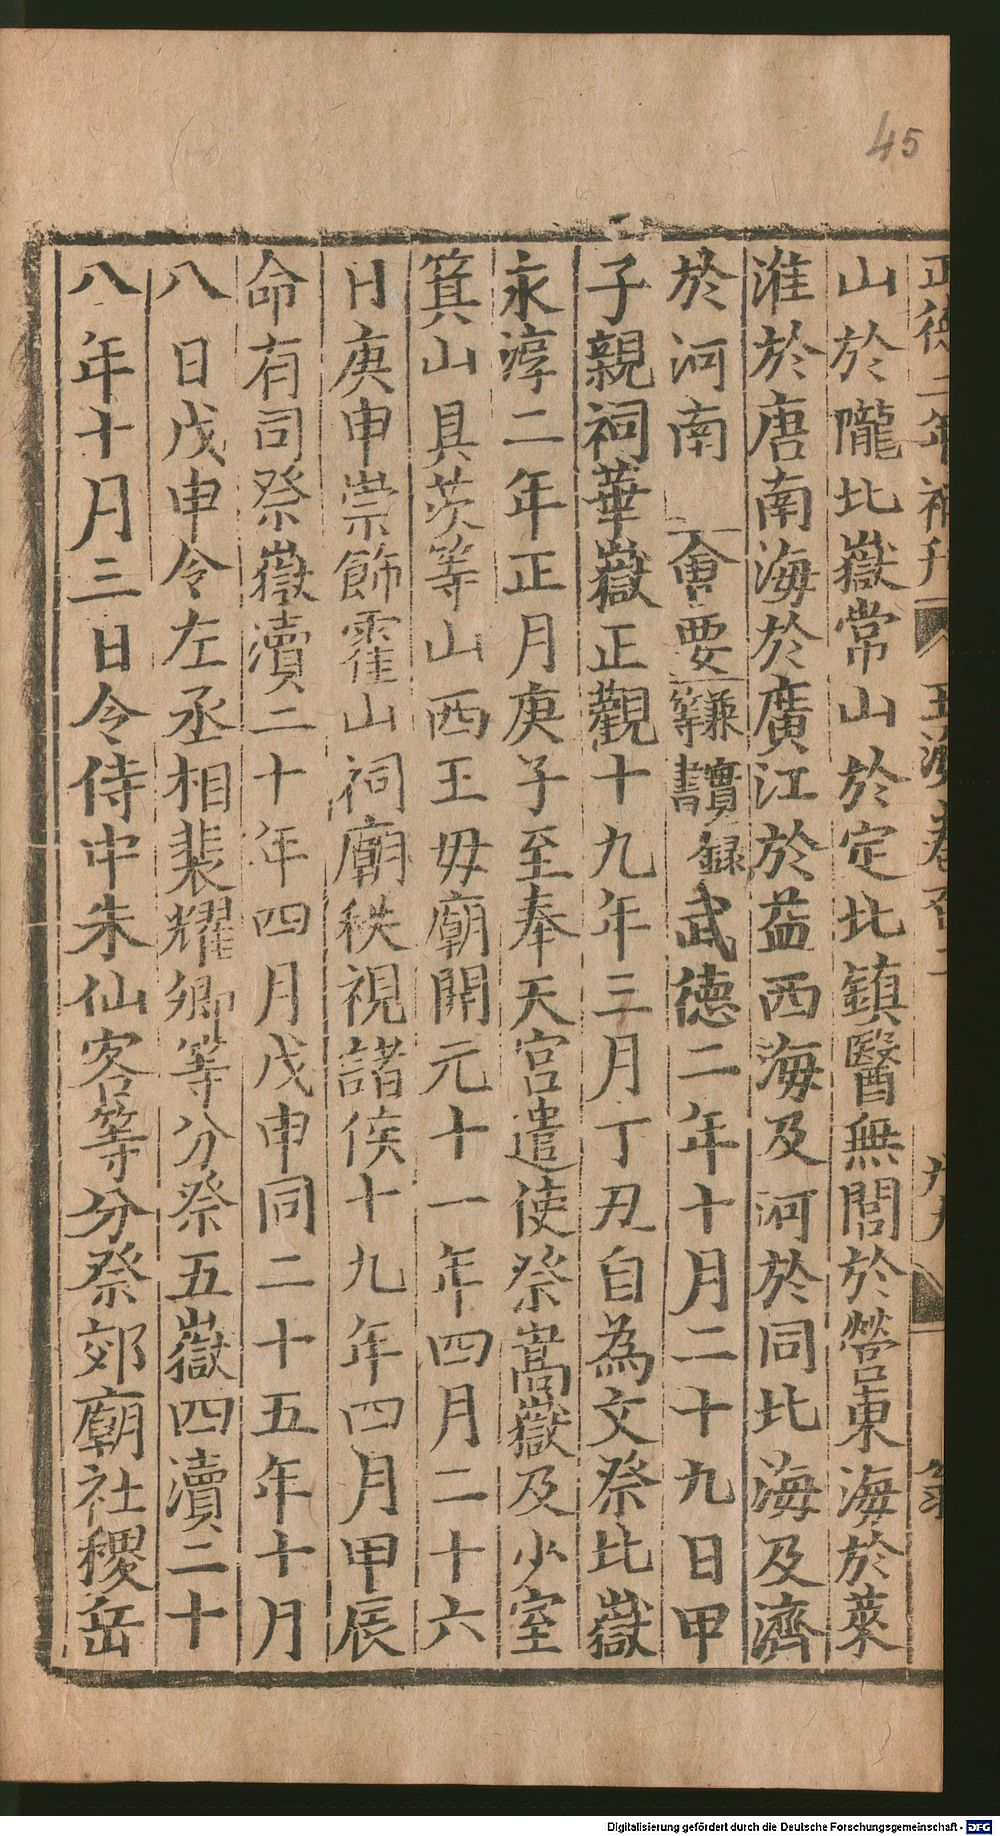 45
正德二年補刋 玉海卷百二 九九
山於隴北嶽常山於定北鎮醫無閭於營東海於萊
淮於唐南海於廣江於益西海及河於同北海及濟
於河南 會要籍讀録武德二年十月二十九日甲
子親祠華嶽正觀十九年三月丁丑自為文祭比嶽
永淳二年正月庚子至奉天宮遣使祭嵩嶽及少室
箕山具茨等山西王毋廟開元十一年四月二十六
日庚申崇飾霍山祠廟秩視諸侯十九年四月甲辰
命有司祭嶽瀆二十年四月戊申同二十五年十月
八日戊申令左丞相裴耀卿等分祭五嶽四瀆二十
八年十月三日令侍中朱仙客等分祭郊廟社稷岳
Digitalisierung gefördert durch die Deutsche Forschungsgemeinschaft - DFG